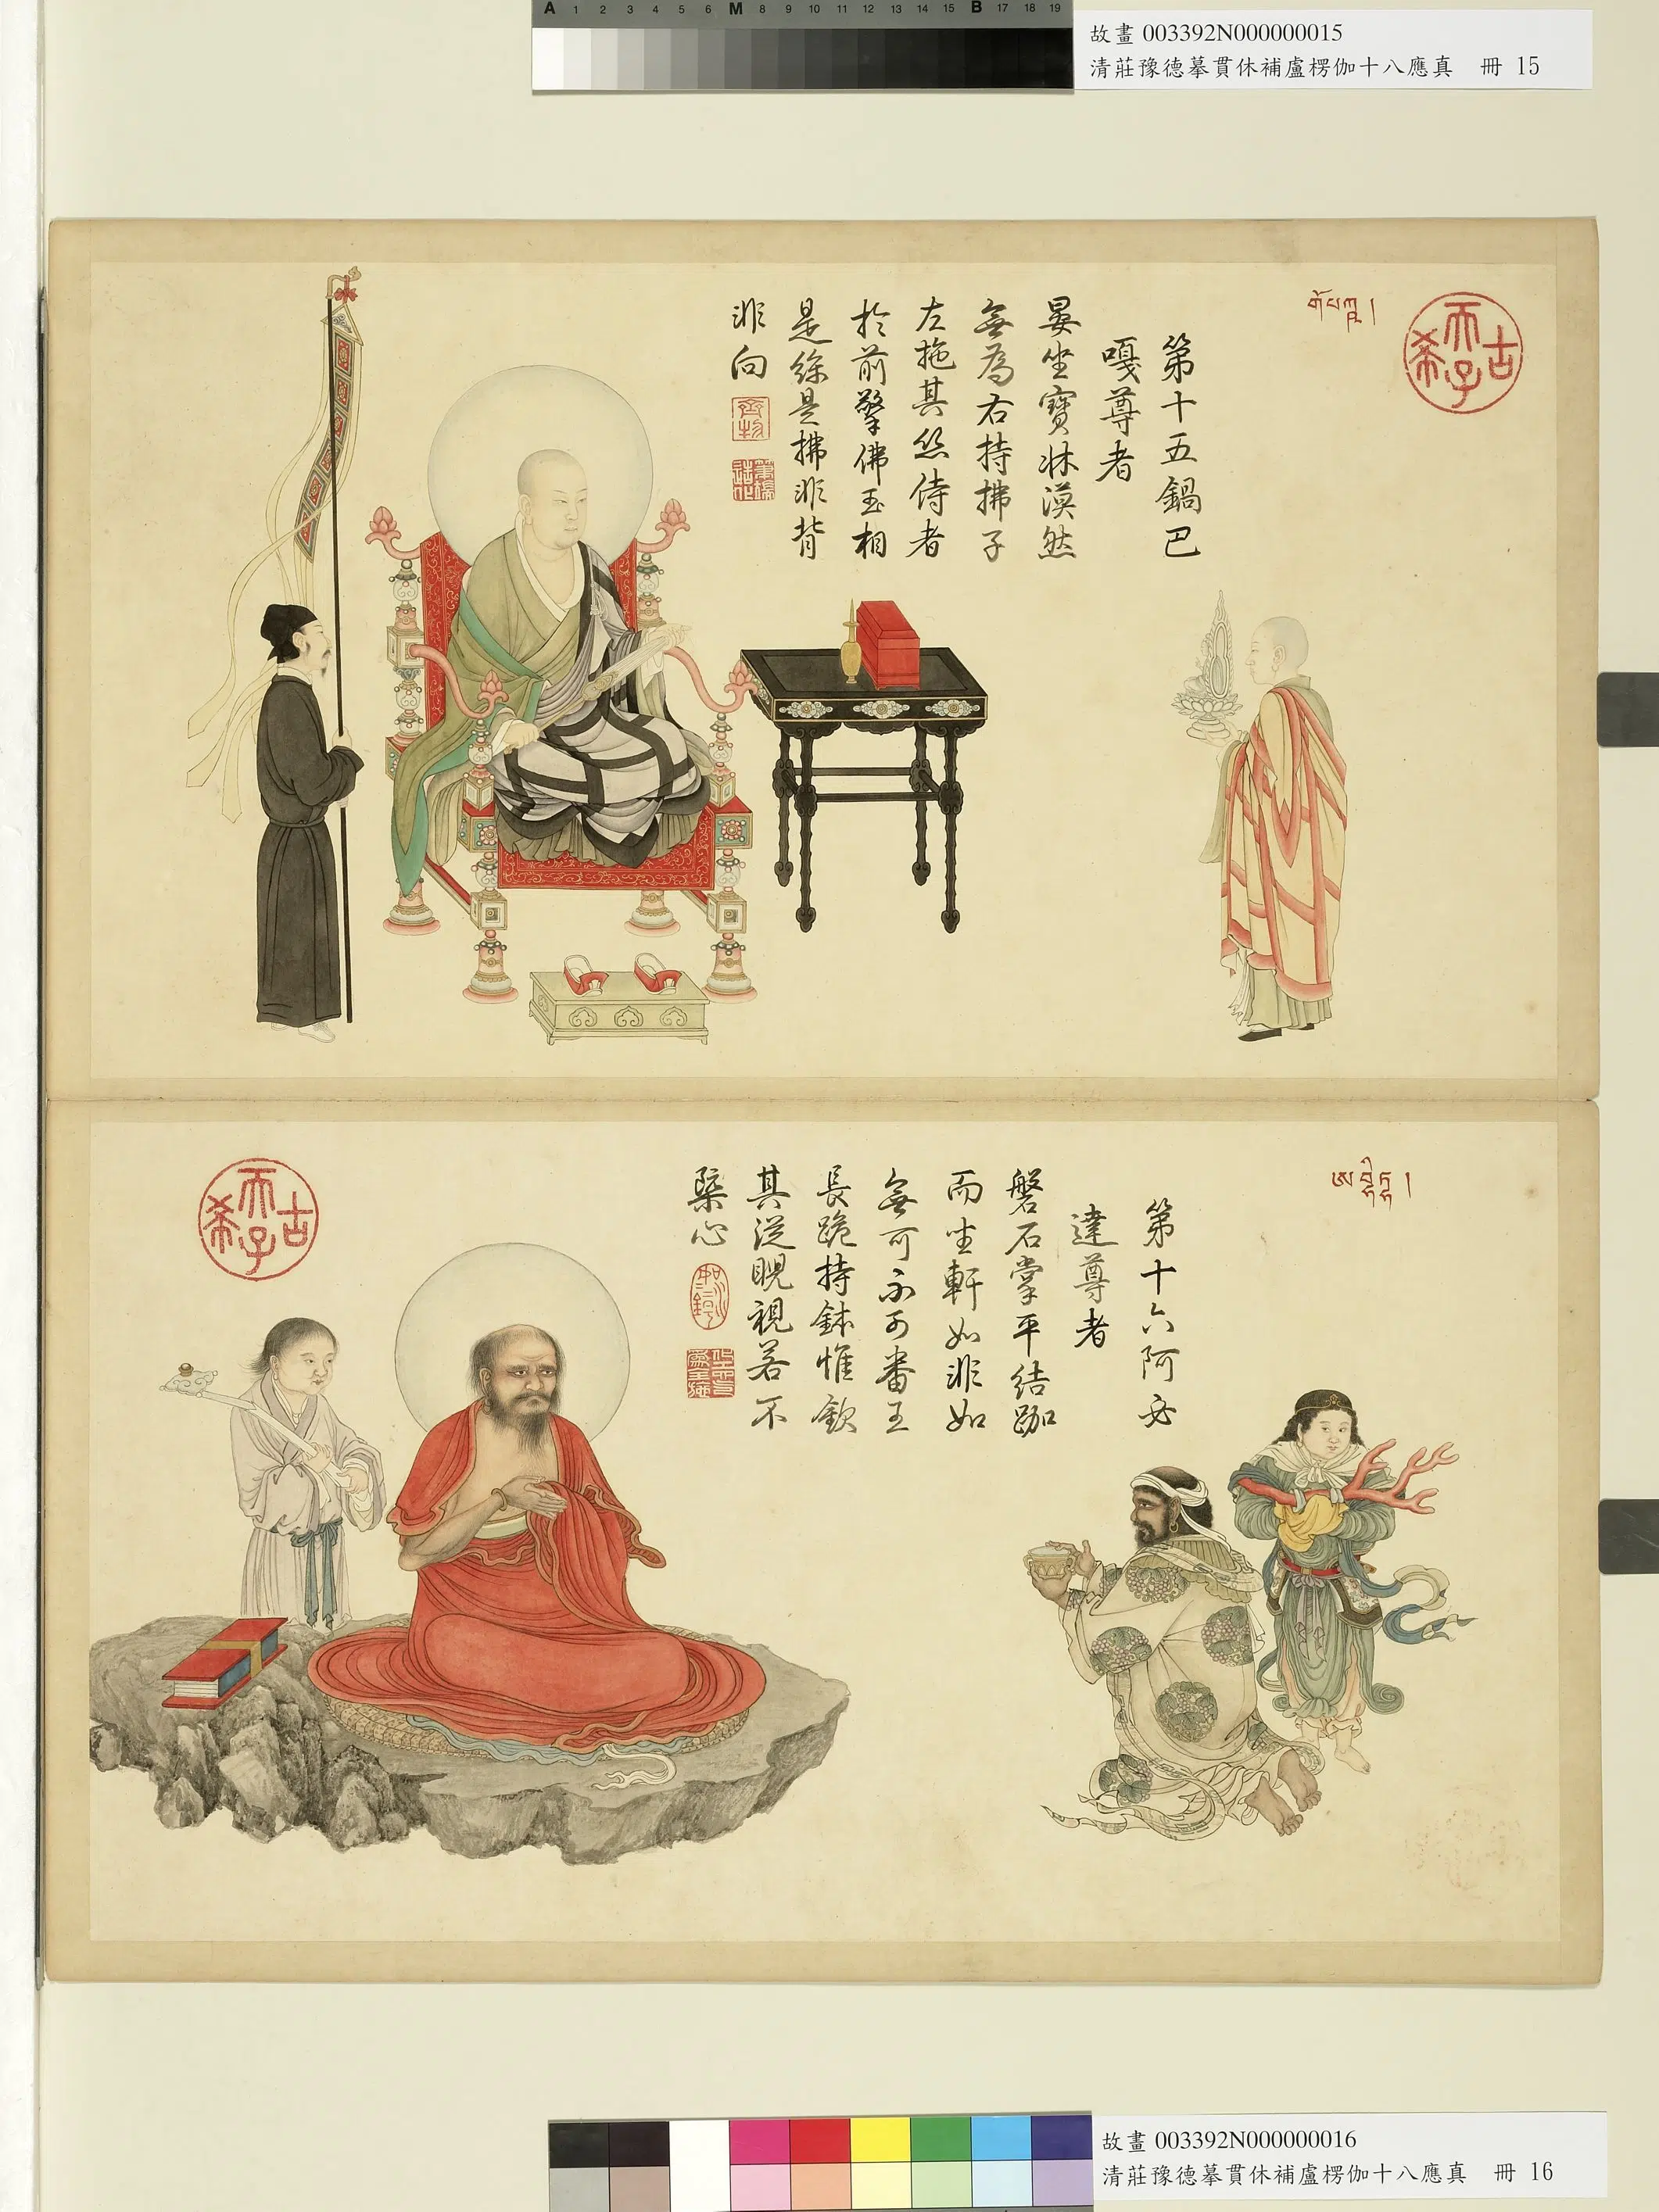 A 1 2 3 4 5 6 M 8 9 10 11 12 13 14 15 B 17 18 19
故畫 003392N000000015
清莊豫德摹貫休補盧楞伽十八應真 冊 15
གོ་པ་ཀ །
古希天子
第十五鍋巴
嘎尊者
晏坐寶牀漠然
無為右持拂子
左拖其絲侍者
於前擎佛玉相
是絲是拂非背
非向
ཨ་བྷི་ཏ །
古希天子
第十六阿必
達尊者
磐石掌平結跏
而坐軒如非如
無可不可番王
長跪持鉢惟欽
其從睨視若不
槩心
故畫 003392N000000016
清莊豫德摹貫休補盧楞伽十八應真 冊 16